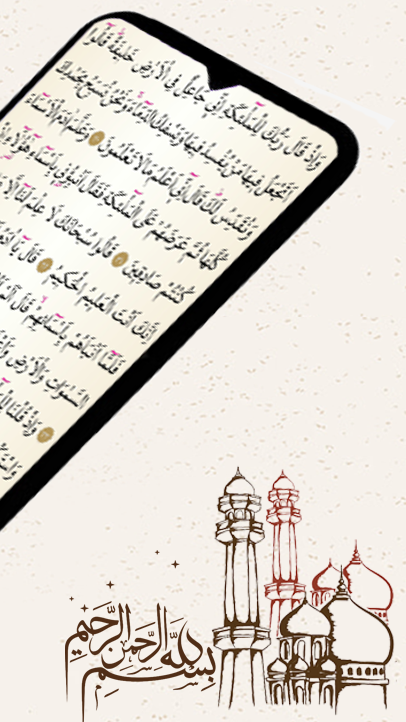 وَاِذْ قَالَ رَبُّكَ لِلْمَلٰٓئِكَةِ اِنّٖي جَاعِلٌ فِي الْاَرْضِ خَلٖيفَةً قَالُٓوا
اَتَجْعَلُ فٖيهَا مَنْ يُفْسِدُ فٖيهَا وَيَسْفِكُ الدِّمَٓاءَ وَنَحْنُ نُسَبِّحُ بِحَمْدِكَ
وَنُقَدِّسُ لَكَ قَالَ اِنّٖٓي اَعْلَمُ مَا لَا تَعْلَمُونَ ٣٠ وَعَلَّمَ اٰدَمَ الْاَسْمَٓاءَ
كُلَّهَا ثُمَّ عَرَضَهُمْ عَلَى الْمَلٰٓئِكَةِ فَقَالَ اَنْبِؤُ۫نٖي بِاَسْمَٓاءِ هٰٓؤُلَٓاءِ
كُنْتُمْ صَادِقٖينَ ٣١ قَالُوا سُبْحَانَكَ لَا عِلْمَ لَنَٓا اِلَّا
اِنَّكَ اَنْتَ الْعَلٖيمُ الْحَكٖيمُ ٣٢ قَالَ يَٓا اٰدَمُ
فَلَمَّٓا اَنْبَاَهُمْ بِاَسْمَٓائِهِمْ قَالَ اَلَمْ
السَّمٰوَاتِ وَالْاَرْضِ
٣٣ وَاِذْ قُلْنَا
بِسْمِ اللَّهِ الرَّحْمَنِ الرَّحِيمِ